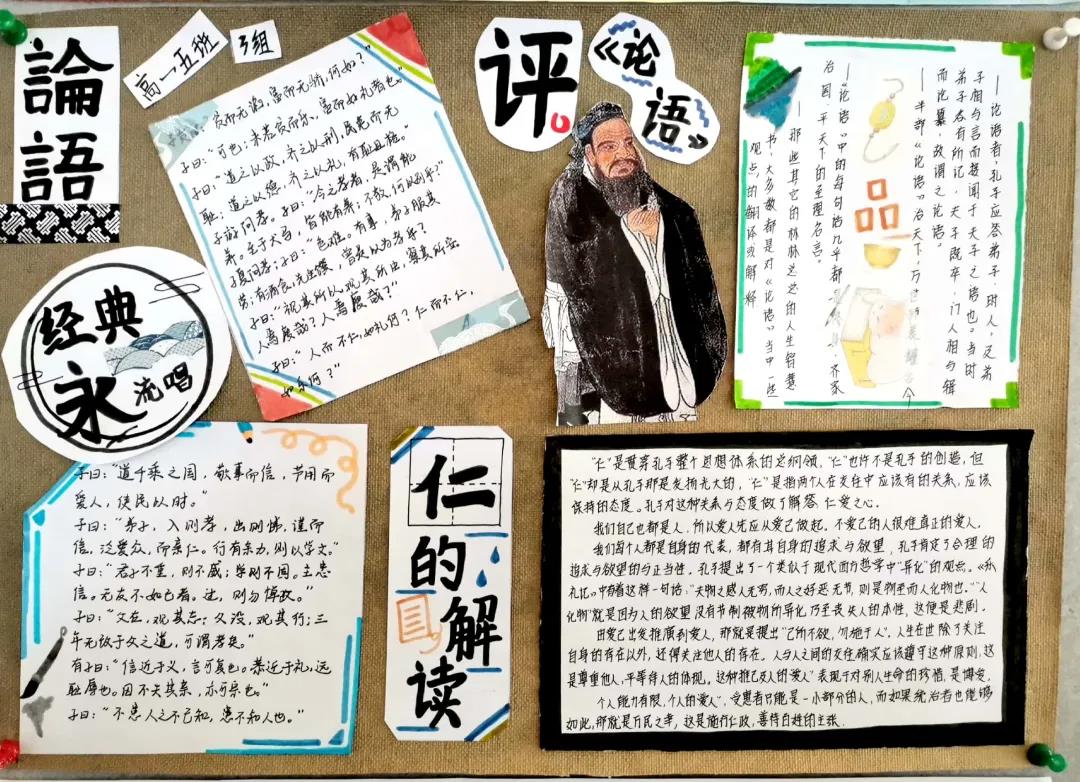 論
語
高一五班
3组
评
《论
语》
经典
永
流唱
贫而无谄,富而无骄,何如?"
子曰:"可也;未若贫而乐,富而好礼者也。"
子曰:"道之以政,齐之以刑,民免而无
耻;道之以德,齐之以礼,有耻且格。"
子游问孝。子曰:"今之孝者,是谓能
养。至于犬马,皆能有养;不敬,何以别乎?"
子夏问孝;子曰:"色难。有事,弟子服其
劳;有酒食,先生馔,曾是以为孝乎?
子曰:"视其所以,观其所由,察其所安
人焉廋哉?人焉廋哉?"
子曰:"人而不仁,如礼何?仁而不仁,
如乐何?"
——论语者,孔子应答弟子,时人,及弟
子相与言而接闻于夫子之语也。当时
弟子各有所记,夫子既卒,门人相与辑
而论纂,故谓之论语。
——半部《论语》治天下,万
——《论语》中的每句话几乎都
齐家
治国,平天下的至理名言。
——那些其它的林林
的人生智慧
书,大多数都是对《论语》当中一些
观点的翻译或解释
子曰:"道千乘之国,敬事而信,节用而
爱人,使民以时。"
子曰:"弟子,入则孝,出则悌,谨而
信,泛爱众,而亲仁。行有余力,则以学文。"
子曰:"君子不重,则不威;学则不固。主忠
信。无友不如己者。过,则勿惮改。"
子曰:"父在,观其志;父没,观其行;三
年无改于父之道,可谓孝矣。"
有子曰:"信近于义,言可复也。恭近于礼,远
耻辱也。因不失其亲,亦可宗也。"
子曰:"不患人之不己知,患不知人也。"
仁
的
解
读
"仁"是贯穿孔子整个思想体系的总纲领,"仁"也许不是孔子的创造,但
"仁"却是从孔子那是发扬光大的,"仁"是指两个人在交往中应该有的关系,应该
保持的态度。孔子对这种关系与态度做了解答:仁爱之心。
我们自己也都是人,所以爱人先应从爱己做起,不爱己的人很难真正的爱人。
我们每个人都是自身的代表,都有其自身的追求与欲望,孔子肯定了合理的
追求与欲望的与正当性。孔子提出了一个类似于现代西方哲学中"异化"的观点。《
礼记》中有着这样一句话:"夫物之感人无穷,而人之好恶无节,则是物至而人化物也。""人
化物"就是因为人的欲望没有节制被物所异化,乃至丧失人的本性,这便是悲剧。
由爱己出发推广到爱人,那就是提出"己所不欲,勿施于人"。人生在世除了关注
自身的存在以外,还得关注他人的存在。人与人之间的交往确实应该遵守这种原则,这
是尊重他人,平等待人的体现。这种推己及人的"爱人"表现于对别人生命的珍惜,是博爱。
个人能力有限,个人的"爱人",受惠者只能是一小部分的人,而如果统治者也能够
如此,那就是万民之幸,这是施行仁政,善待百姓的主张.